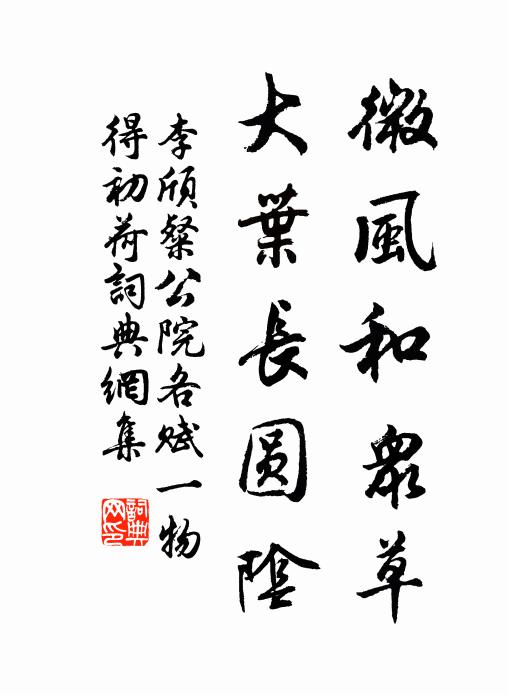 微風和眾草
大葉長圓陰
李頎粲公院各賦一物
得初荷詞典網集
詞典
网印